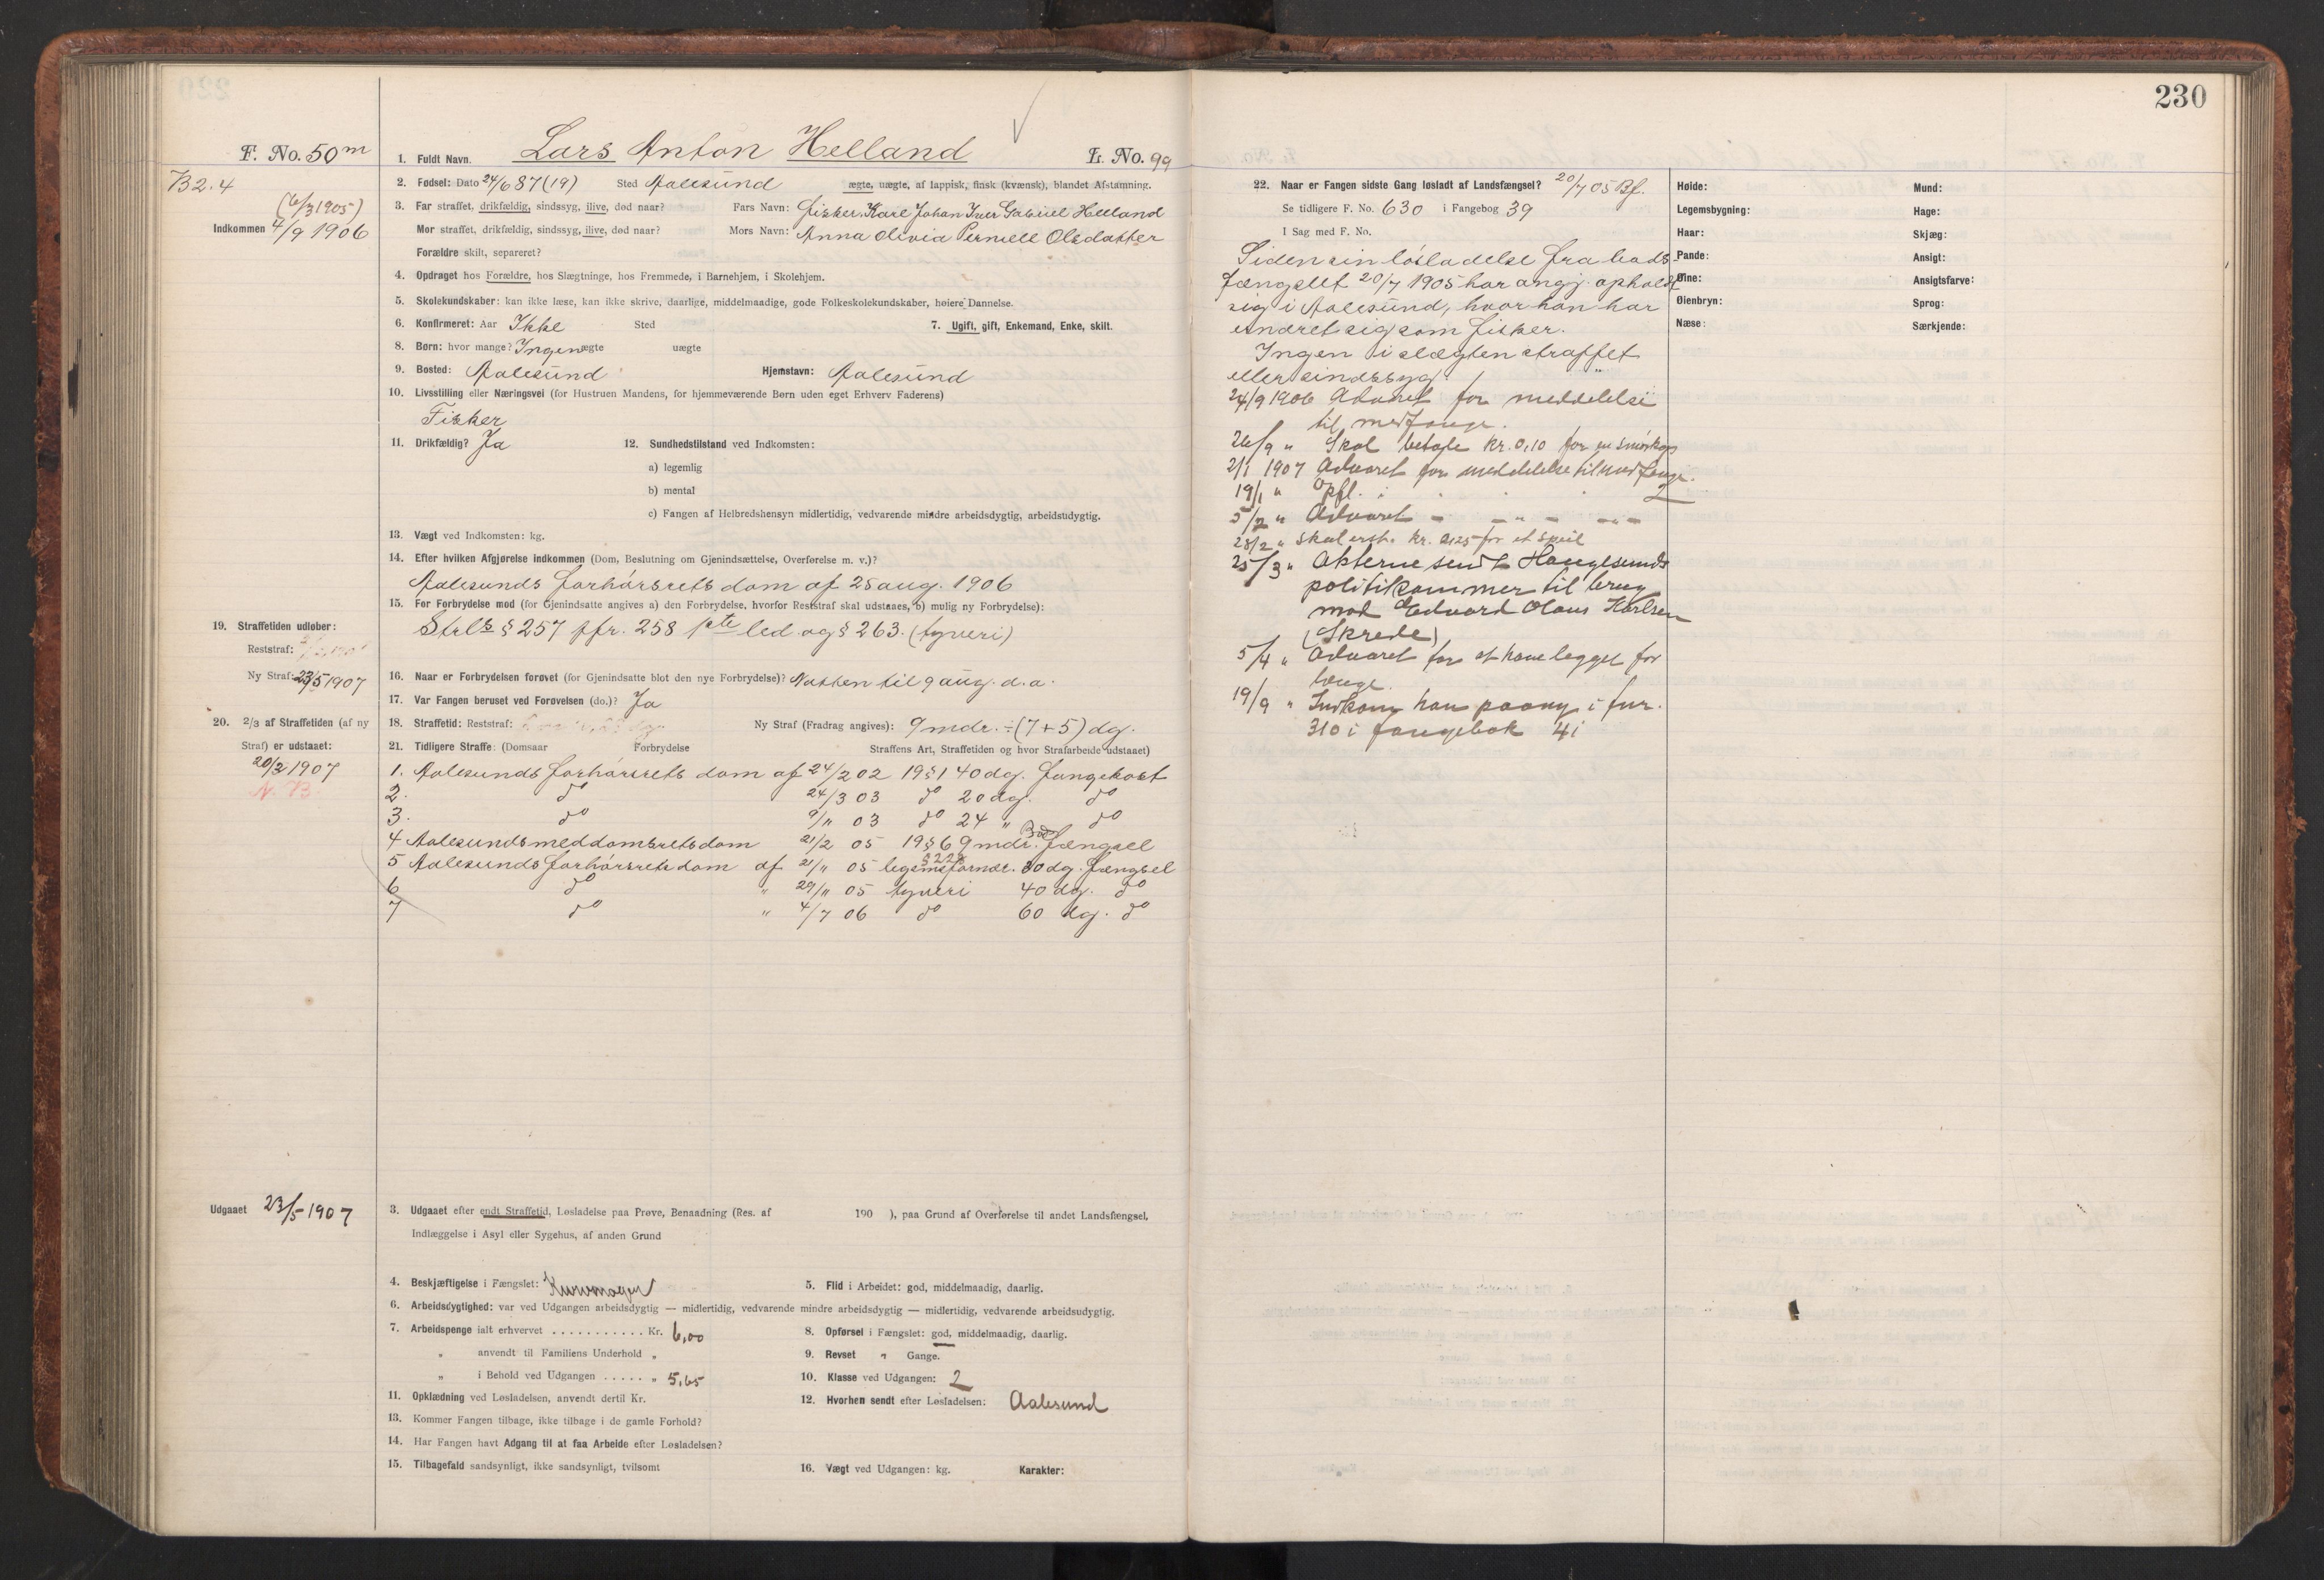 230
F. No. 50 m
1. Fuldt Navn. Lars Anton Helland L. No. 99
B 2. 4
(6/3 1905)
Indkommen 4/9 1906
2. Fødsel: Dato 24/6 87 (19) Sted Aalesund ægte, uægte, af lappisk, finsk (kvænsk), blandet Afstamning.
3. Far straffet, drikfældig, sindssyg, ilive, død naar? Fars Navn: Fisker, Karl Johan Iver Gabriel Helland
Mor straffet, drikfældig, sindssyg, ilive, død naar? Mors Navn: Anna Olivia Pernelle Olsdatter
Forældre skilt, separeret?
4. Opdraget hos Forældre, hos Slægtninge, hos Fremmede, i Barnehjem, i Skolehjem.
5. Skolekundskaber: kan ikke læse, kan ikke skrive, daarlige, middelmaadige, gode Folkeskolekundskaber, høiere Dannelse.
6. Konfirmeret: Aar Ikke Sted 7. Ugift, gift, Enkemand, Enke, skilt.
8. Børn: hvor mange? Ingen ægte uægte
9. Bosted: Aalesund Hjemstavn: Aalesund
10. Livsstilling eller Næringsvei (for Hustruen Mandens, for hjemmeværende Børn uden eget Erhverv Faderens)
Fisker
11. Drikfældig? Ja 12. Sundhedstilstand ved Indkomsten:
a) legemlig
b) mental
c) Fangen af Helbredshensyn midlertidig, vedvarende mindre arbeidsdygtig, arbeidsudygtig.
13. Vægt ved Indkomsten: kg.
14. Efter hvilken Afgjørelse indkommen (Dom, Beslutning om Gjenindsættelse, Overførelse m. v.)?
Aalesunds forhørsrets dom af 25 aug. 1906
15. For Forbrydelse mod (for Gjenindsatte angives a) den Forbrydelse, hvorfor Reststraf skal udstaaes, b) mulig ny Forbrydelse):
Strls § 257 jfr. 258 1ste led og § 263. (tyveri)
19. Straffetiden udløber:
Reststraf:
Ny Straf: 23/5 1907
16. Naar er Forbrydelsen forøvet (for Gjenindsatte blot den nye Forbrydelse)? Natten til 9 aug. d.a.
17. Var Fangen beruset ved Forøvelsen (do.)? Ja
20. 2/3 af Straffetiden (af ny
Straf) er udstaaet:
20/2 1907
N. B.
18. Straffetid: Reststraf: Ny Straf (Fradrag angives): 9 mdr. ÷ (7 + 5) dg.
21. Tidligere Straffe: (Domsaar Forbrydelse Straffens Art, Straffetiden og hvor Strafarbeide udstaaet)
1. Aalesunds forhørsrets dom af 24/2 02 19 § 1 40 dg. fangekost
2. do 24/3 03 do 20 dg. do
3. do 9/11 03 do 24 " do
4 Aalesunds meddomsrets dom 21/2 05 19 § 6 9 mdr. Bods fængsel
5 Aalesunds forhørsrets dom af 21/11 05 legemsfornær. § 228 30 dg. fængsel
6 do " 29/11 05 tyveri 40 dg. do
7 do " 4/7 06 do 60 dg. do
Udgaaet 23/5 1907
3. Udgaaet efter endt Straffetid, Løsladelse paa Prøve, Benaadning (Res. af 190 ), paa Grund af Overførelse til andet Landsfængsel,
Indlæggelse i Asyl eller Sygehus, af anden Grund
4. Beskjæftigelse i Fængslet: Kurvmager 5. Flid i Arbeidet: god, middelmaadig, daarlig.
6. Arbeidsdygtighed: var ved Udgangen arbeidsdygtig — midlertidig, vedvarende mindre arbeidsdygtig — midlertidig, vedvarende arbeidsudygtig.
7. Arbeidspenge ialt erhvervet ........... Kr. 6,00 8. Opførsel i Fængslet: god, middelmaadig, daarlig.
" anvendt til Familiens Underhold " 9. Revset " Gange.
" i Behold ved Udgangen ..... " 5,65 10. Klasse ved Udgangen: 2
11. Opklædning ved Løsladelsen, anvendt dertil Kr. 12. Hvorhen sendt efter Løsladelsen: Aalesund
13. Kommer Fangen tilbage, ikke tilbage i de gamle Forhold?
14. Har Fangen havt Adgang til at faa Arbeide efter Løsladelsen?
15. Tilbagefald sandsynligt, ikke sandsynligt, tvilsomt 16. Vægt ved Udgangen: kg. Karakter:
22. Naar er Fangen sidste Gang løsladt af Landsfængsel? 20/7 05 Bf.
Se tidligere F. No. 630 i Fangebog 39
I Sag med F. No.
Siden sin løsladelse fra bods-
fængslet 20/7 1905 har angj. opholdt
sig i Aalesund, hvor han har
ernæret sig som fisker.
Ingen i slægten straffet
eller sindssyg.
24/9 1906 Advaret for meddelelse
til medfange.
26/9 " Skal betale kr. 0,10 for en smørkop
2/1 1907 Advaret for meddelelse til medfange.
19/1 " Opfl. 2
5/2 " Advaret - - " - - " -
28/2 " skal erst. kr. 0,25 for et speil
25/3 " Akterne sendt Haugesunds
politikammer til brug
mod Edvard Olaus Karlsen
(Skrede)
5/4 " Advaret for at have ligget for
længe.
19/9 " Indkom han paany i fnr.
310 i fangebok 41
Høide: Mund:
Legemsbygning: Hage:
Haar: Skjæg:
Pande: Ansigt:
Øine: Ansigtsfarve:
Øienbryn: Sprog:
Næse: Særkjende: